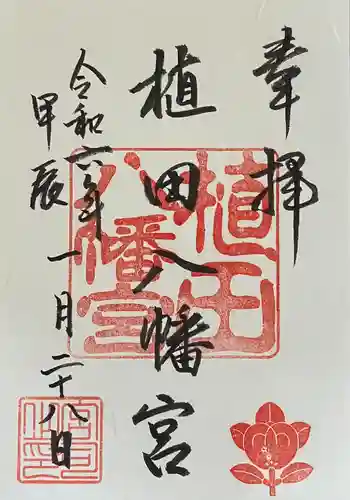 奉拝
植田八幡宮
令和六年
甲辰
一月二十八日
植田
八幡宮